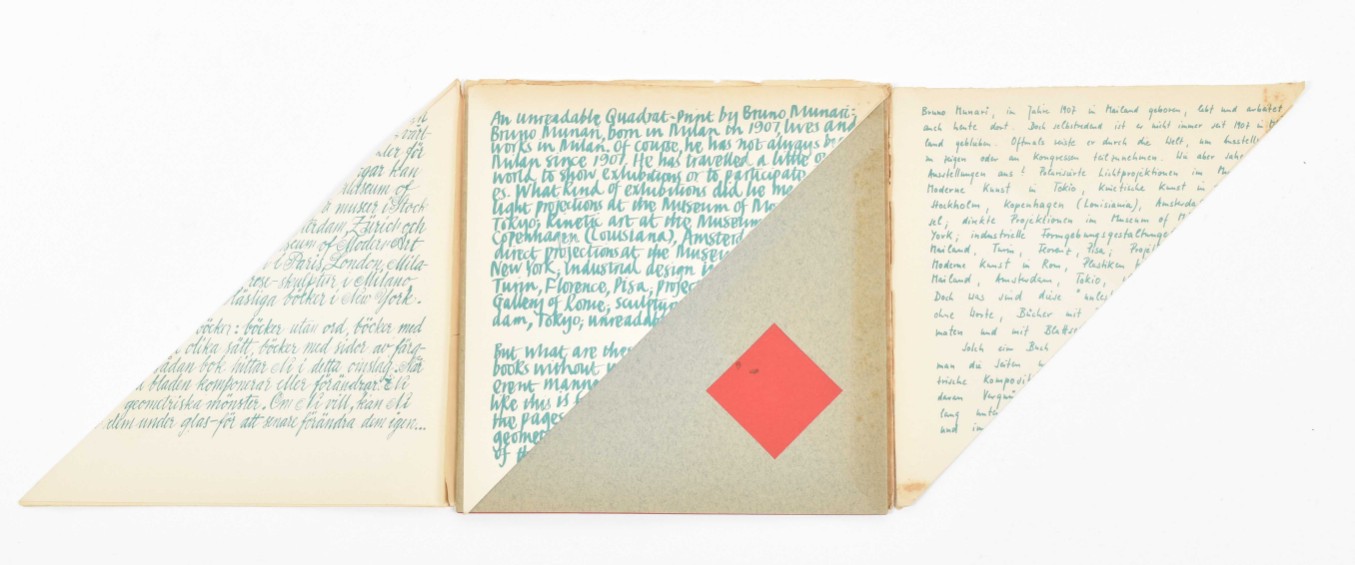 och
Stock
Zürich och
of Modern Art
i Paris, London, Mila-
skulptur i Milano
böcker i New York.
böcker: böcker utan ord, böcker med
olika sätt, böcker med sidor av färg-
bok hittar Ni i detta omslag. När
bladen komponerar eller förändrar Ni
geometriska mönster. Om Ni vill, kan Ni
dem under glas-för att senare förändra dem igen...
An unreadable Quadrat-print by Bruno Munari:
Bruno Munari, born in Milan in 1907, lives and
works in Milan. Of course, he has not always be
Milan since 1907. He has travelled a little
world, to show exhibitions or to participate
es. What kind of exhibitions did he
light projections at the Museum of Mo
Tokyo; kinetic art at the Museum
Copenhagen (Louisiana), Amsterd
direct projections at the Museu
New York; Industrial design
Turin, Florence, Pisa; projec
Gallery of Rome; sculptu
dam, Tokyo; unreadab
But what are the
books without
erent manne
like this is
the pages
geomet
of th
Bruno Munari, im Jahre 1907 in Mailand geboren, lebt und arbeitet
auch heute dort. Doch selbstredend ist er nicht immer seit 1907 in
land geblieben. Oftmals reiste er durch die Welt, um Ausstell
zu zeigen oder an Kongressen teilzunehmen. Wo aber
Ausstellungen aus? Polarisierte Lichtprojektionen im
Moderne Kunst in Tokio, Kinetische Kunst in
Stockholm, Kopenhagen (Louisiana), Amsterda
sel; direkte Projektionen im Museum of M
York; industrielle Formgebungsgestaltunge
Mailand, Turin, Florenz, Pisa; Projek
Moderne Kunst in Rom, Plastiken
Mailand, Amsterdam, Tokio,
Doch was sind diese "unles
ohne Worte, Bücher mit
maten und mit Blätter
Solch ein Buch
man die Seiten
trische Komposit
daran Vergnü
lang unter
und im